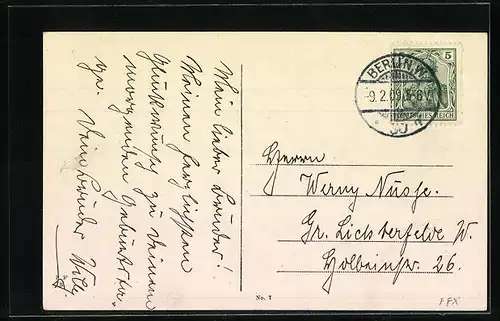 Mein lieber Bruder!
Meinen herzlichsten
Glückwunsch zu Deinem
morgenden Geburtsta-
ge. Dein Bruder Willy
BERLIN.W.
-9.2.09.5-6V.
30 a
5
DEUTSCHES REICH
Herrn
Werny Nusche.
Gr. Lichterfelde W.
Holbeinstr. 26.
No. 7
FFX